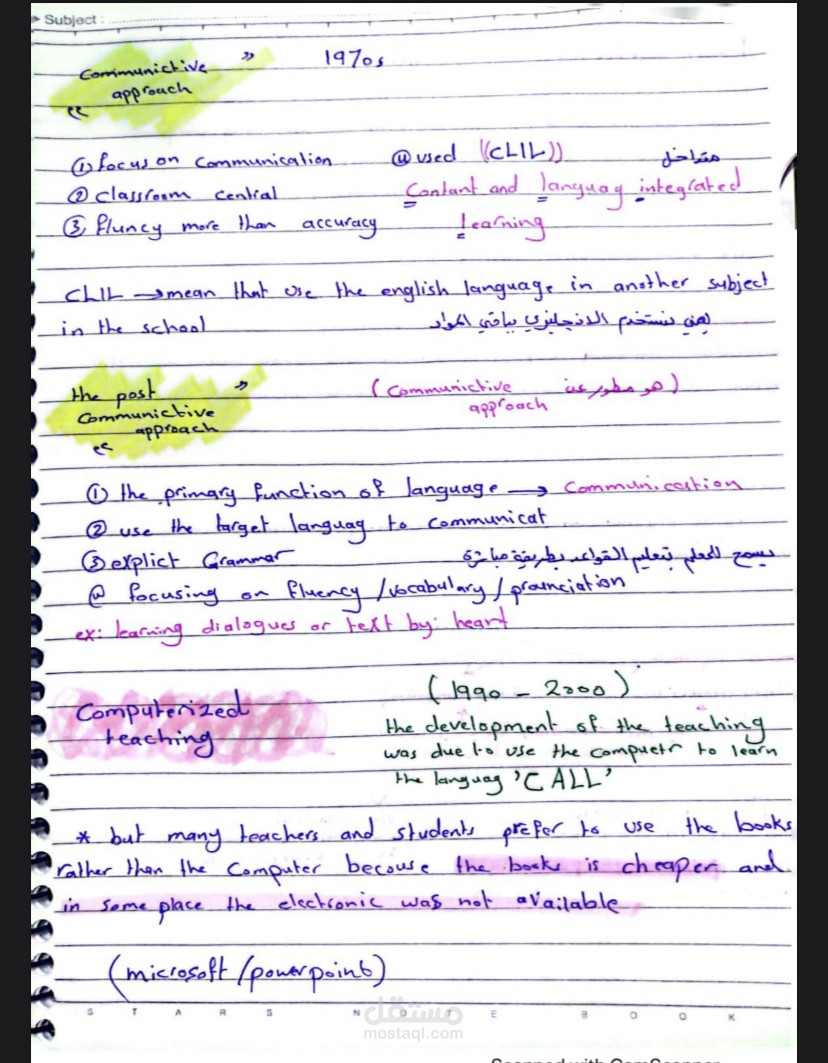 Subject :
Communictive
approach
" 1970s
① focus on Communication
② classroom central
③ fluncy more than accuracy
④ used ((CLIL)) متداخل
Contant and languag integrated
learning
CLIL → mean that use the english language in another subject
in the school يعني نستخدم الانجليزي بباقي المواد
the post
Communictive
approach
(هو مطور عن Communictive
approach)
① the primary function of language → Communication
② use the target languag to communicat
③ explict Grammar يسمح للمعلم بتعليم القواعد بطريقة مباشرة
④ focusing on fluency / vocabulary / prounciation
ex: learning dialogues or text by heart
Computerized
teaching
(1990 - 2000)
the development of the teaching
was due to use the compuetr to learn
the languag 'CALL'
* but many teachers and students prefer to use the books
rather than the Computer becouse the books is cheaper and
in some place the electronic was not available
(microsoft / powerpoint)
STARS NOTE BOOK
مستقل
mostaql.com
Scanned with CamScanner